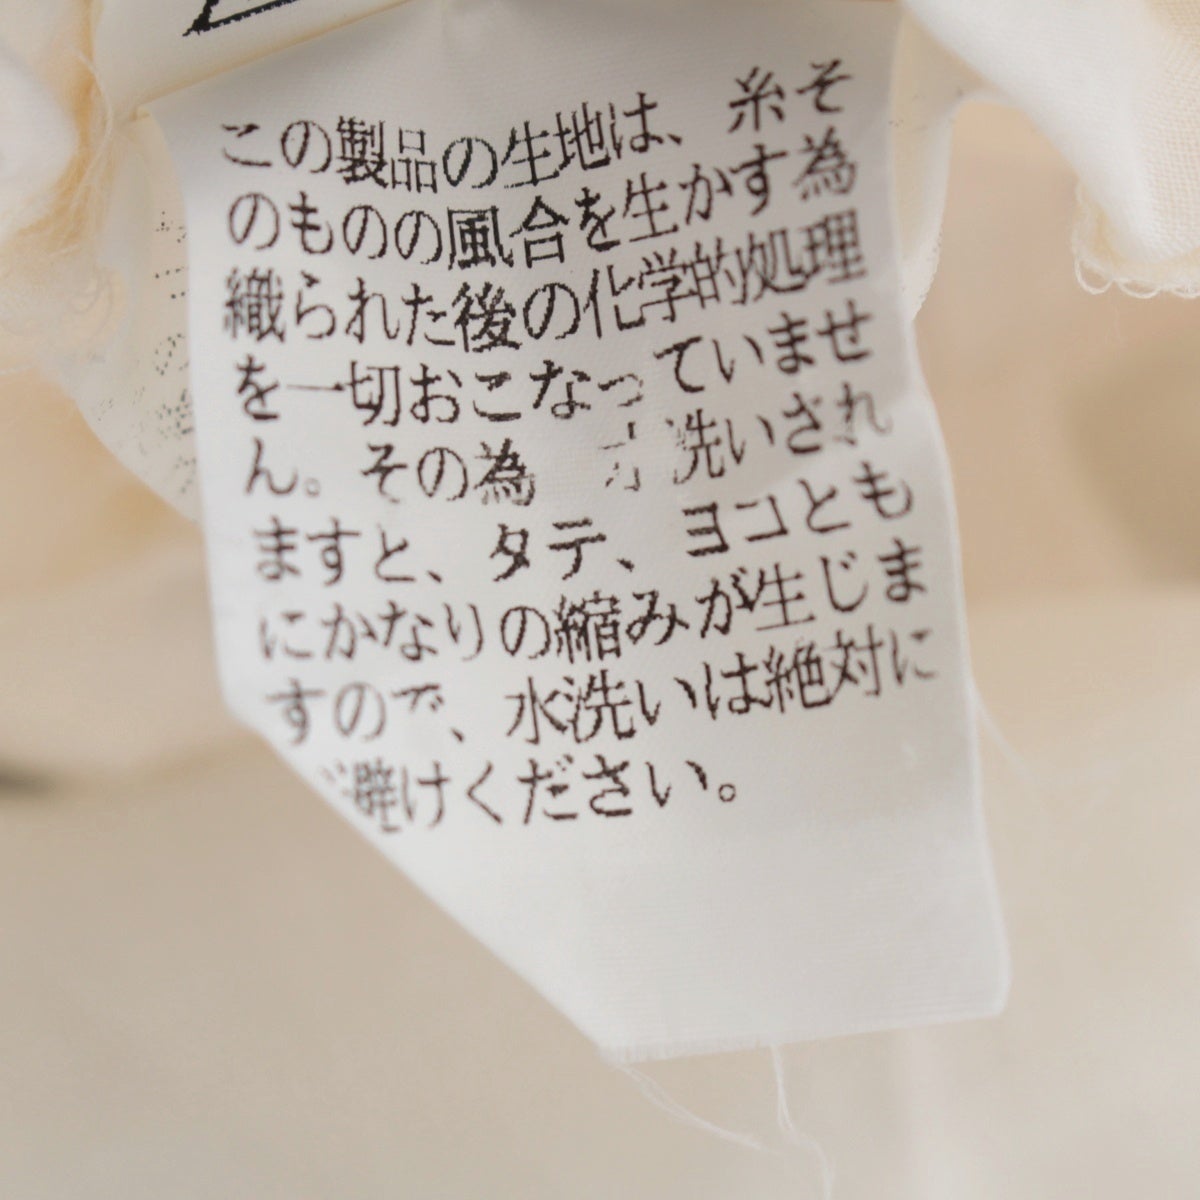 この製品の生地は、糸そ
のものの風合を生かす為
織られた後の化学的処理
を一切おこなっていませ
ん。その為 水洗いされ
ますと、タテ、ヨコとも
にかなりの縮みが生じま
すので、水洗いは絶対に
避けください。